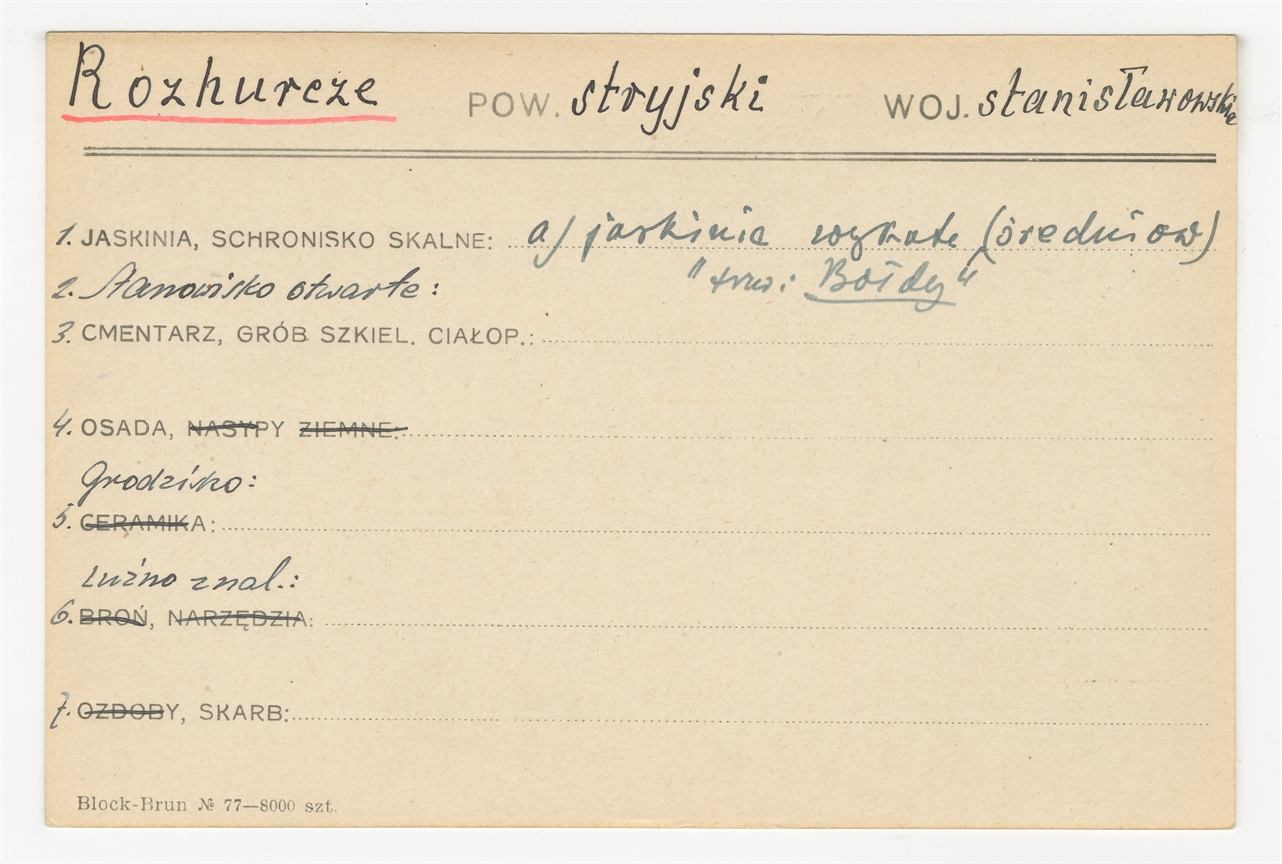 Rozhurcze POW. stryjski WOJ. stanisławowskie
1. JASKINIA, SCHRONISKO SKALNE: a) jaskinia wykute (średniow)
2. Stanowisko otwarte: "tzw: Bołdy"
3. CMENTARZ, GRÓB SZKIEL. CIAŁOP.:
4. OSADA, NASYPY ZIEMNE:
Grodzisko:
5. CERAMIKA:
Luźno znal.:
6. BROŃ, NARZĘDZIA:
7. OZDOBY, SKARB:
Block-Brun № 77—8000 szt.